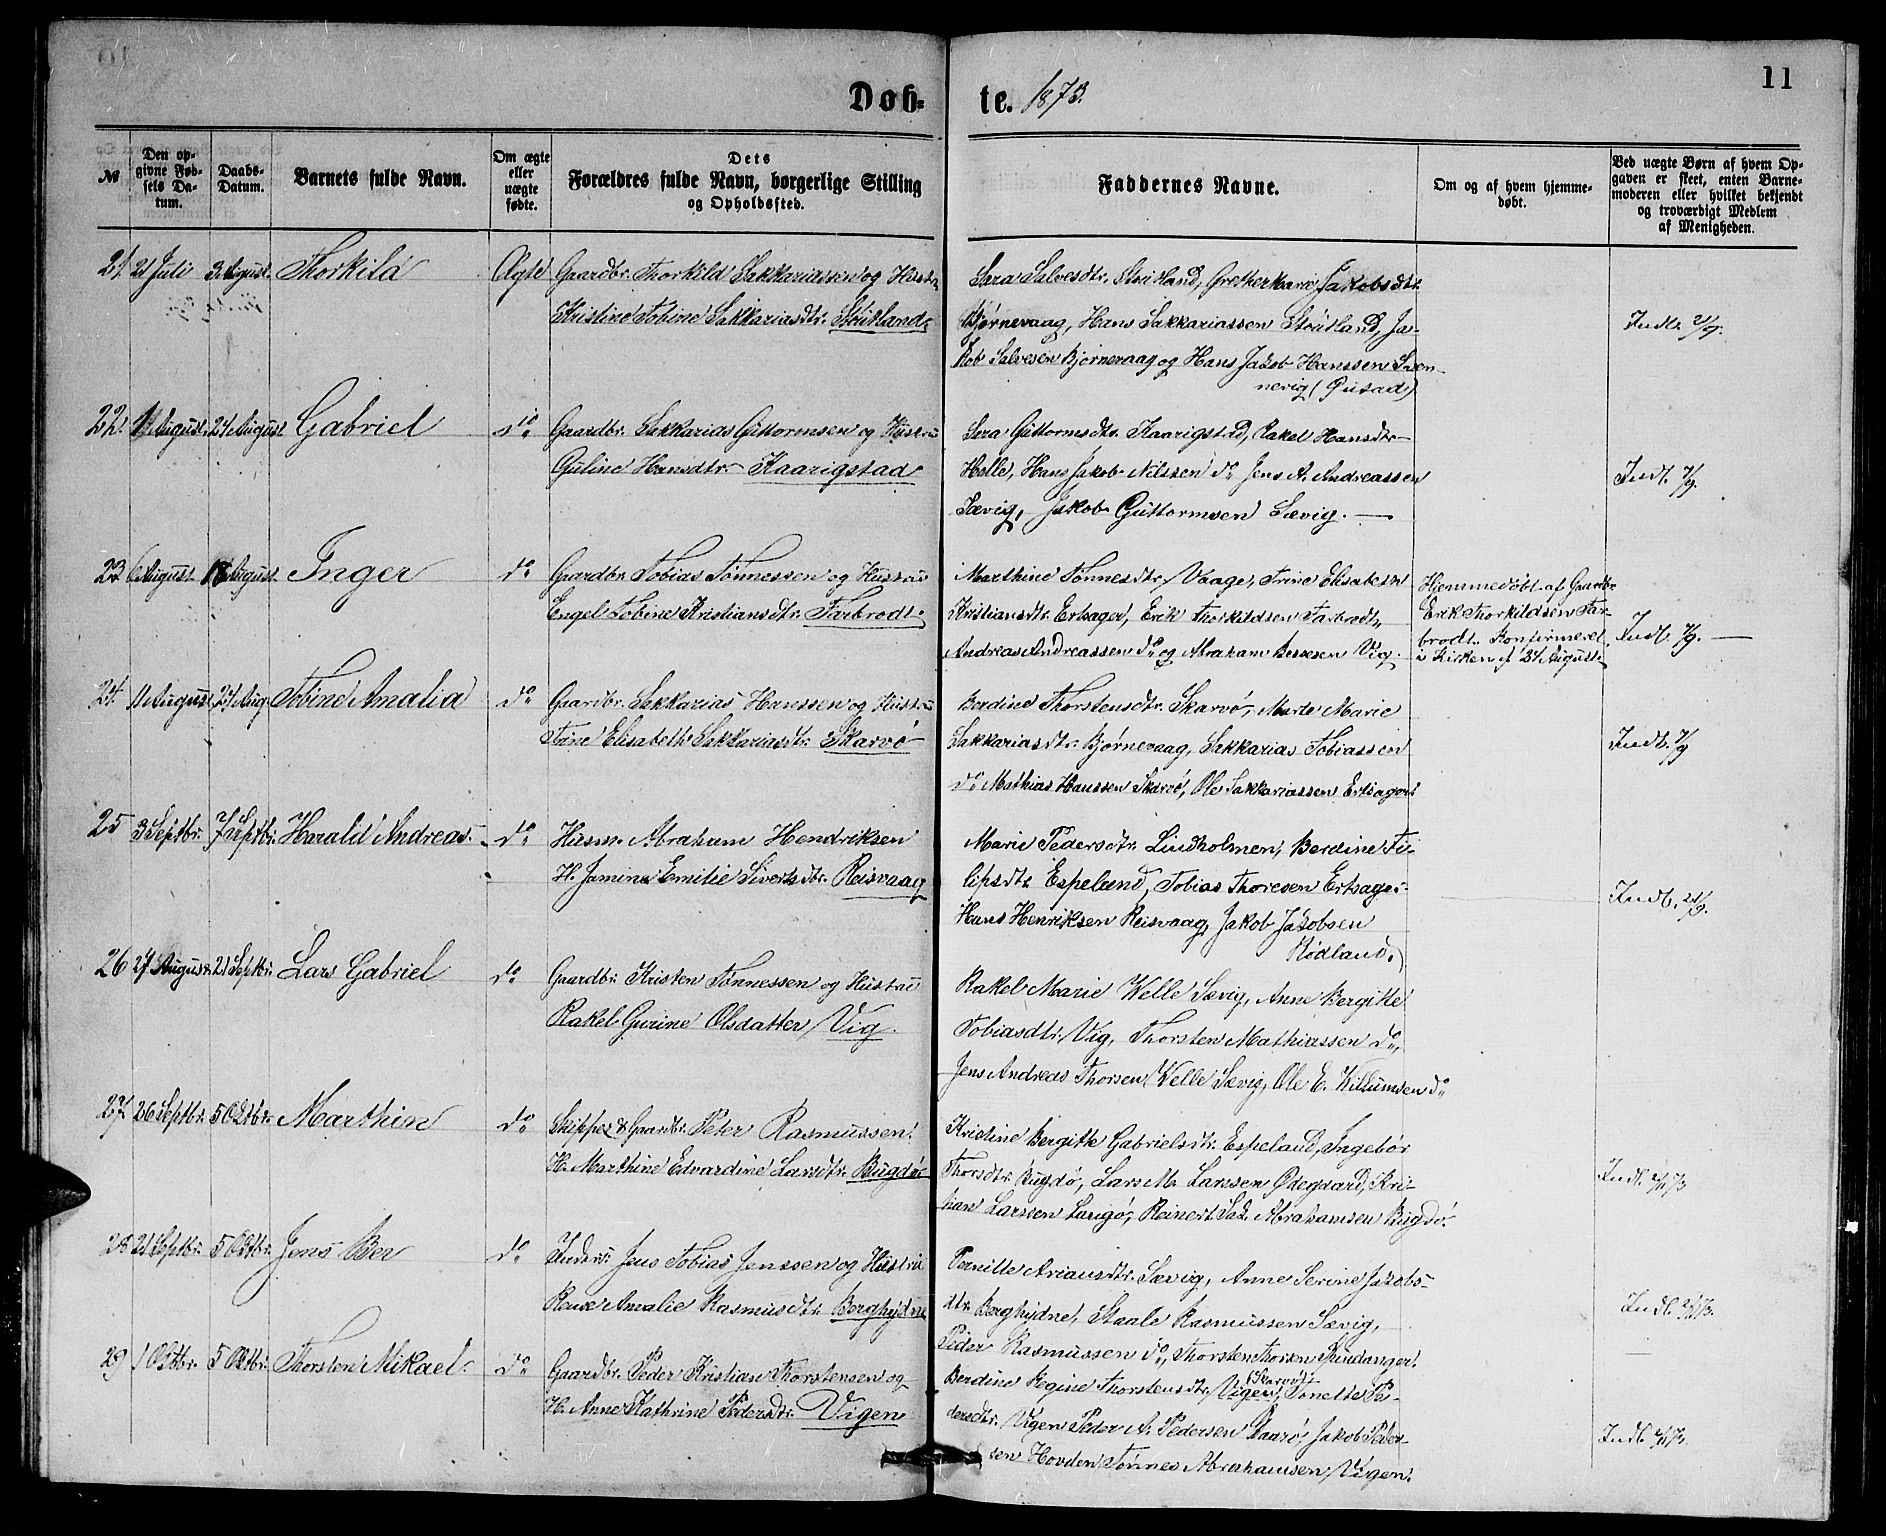 11
Døb- te. 1873.
№
Den opgivne Fødsels Datum.
Daabs-Datum.
Barnets fulde Navn.
Om ægte eller uægte fødte.
Dets Forældres fulde Navn, borgerlige Stilling og Opholdssted.
Faddernes Navne.
Om og af hvem hjemmedøbt.
Ved uægte Børn af hvem Opgaven er skeet, enten Barnemoderen eller hvilket bekjendt og troværdigt Medlem af Menigheden.
21. 21 Juli 3 August. Thorkild Ægte Gaardbr. Thorkild Sakkariassen og Hustru
Kristine Tobine Sakkariasdtr. Støitland.
Sara Salvesdtr. Støitland, Grethe Marie Jakobsdtr.
Bjørnevaag, Hans Sakkariassen Støitland, Ja-
kob Salvesen Bjørnevaag og Hans Jakob Hanssen Sven-
nevig (Øusad)
Indb. 21/9.
22. August. 24 August Gabriel do Gaardbr. Sakkarias Guttormsen og Hustru
Guline Hansdtr. Kaarigstad.
Sara Guttormsdtr. Kaarigstad, Rakel Hansdtr.
Helle, Hans Jakob Nilssen do Jens A. Andreassen
Sævig, Jakob Guttormsen Sævig.
Indb. 7/9.
23. 6 August August. Inger do Gaardbr. Tobias Tønnessen og Hustru
Engel Tobine Kristiansdtr. Farbrodt.
Marthine Tønnesdtr. Vaage, Trine Elisabeth
Kristiansdtr. Ertsager, Erik Thorkildsen Farbrodt,
Andreas Andreassen do og Abraham Berntsen Vig.
Hjemmedøbt af Gaardbr.
Erik Thorkildsen Far-
brodt. Konfirmeret
i Kirken d. 24 August.
Indb. 7/9.
24. 11 August 24 Aug. Tobine Amalia do Gaardbr. Sakkarias Hanssen og Hustru
Trine Elisabeth Sakkariasdtr. Skarvø
Berdine Thorstensdtr. Skarvø, Marte Marie
Sakkariasdtr. Bjørnevaag, Sakkarias Tobiassen
do Mathias Hanssen Skarvø, Ole Sakkariassen Ertsager.
Indb. 7/9
25 3 Septbr. 7 Septbr. Harald Andreas. do Husm. Abraham Hendriksen
H. Jamine Emilie Sivertsdtr. Reisvaag
Marie Pedersdtr. Lindholmen, Berdine Fi-
lipsdtr. Espeland, Tobias Thoresen Ertsager.
Hans Henriksen Reisvaag, Jakob Jakobsen
Rødland.
Indb. 21/9.
26 27 August 21 Septbr. Lars Gabriel do Gaardbr. Kristen Tønnessen og Hustru
Rakel Gurine Olsdatter Vig.
Rakel Marie Welle Sævig, Anne Bergitte
Tobiasdtr. Vig, Thorsten Mathiassen do,
Jens Andreas Thorsen Welle Sævig, Ole E. Willumsen do
27. 26 Septbr. 5 Oktbr. Marthin do Skipper & Gaardbr. Peter Rasmussen.
H. Marthine Edvardine Larsdtr. Bugdø
Kristine Bergitte Gabrielsdtr. Espeland, Ingebor
Thorsdtr. Bugdø, Lars M. Larssen Ødegaard, Kri-
stian Larssen Langø, Reinert Sak. Abrahamsen Bugdø.
Indb. 2/11 73
28 21 Septbr. 5 Oktbr. Jens Ber do Inders. Jens Tobias Jenssen og Hustru
Amalie Rasmusdtr. Berghydne
Pernille Ariansdtr. Sævig, Anne Serine Jakobs-
dtr. Berghydne, Staale Rasmussen Sævig,
Peder Rasmussen do, Thorsten Thorsen Spindanger.
29 1 Oktbr. 5 Oktbr. Thorsten Mikael. do Gaardbr. Peder Kristian Thorstensen og
H. Anne Kathrine Pedersdtr. Vigen
Berdine Regine Thorstensdtr. Vigen (Skarvø), Tonette Pe-
dersdtr. Vigen Peder A. Pedersen Raarø, Jakob Peder-
sen Hovden, Tønnes Abrahamsen Vigen.